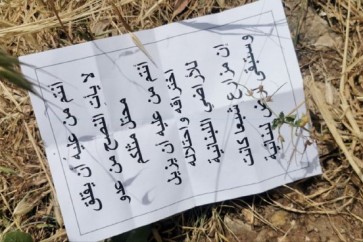 أنتم من عليه أن يقلق
لا يأت النصح من عدو
محتل مثلكم
أنتم من عليه ان يزيل
اختراقه و احتلاله
للأراضي اللبنانية
ان مزارع شبعا كانت
وستبقى لبنانية